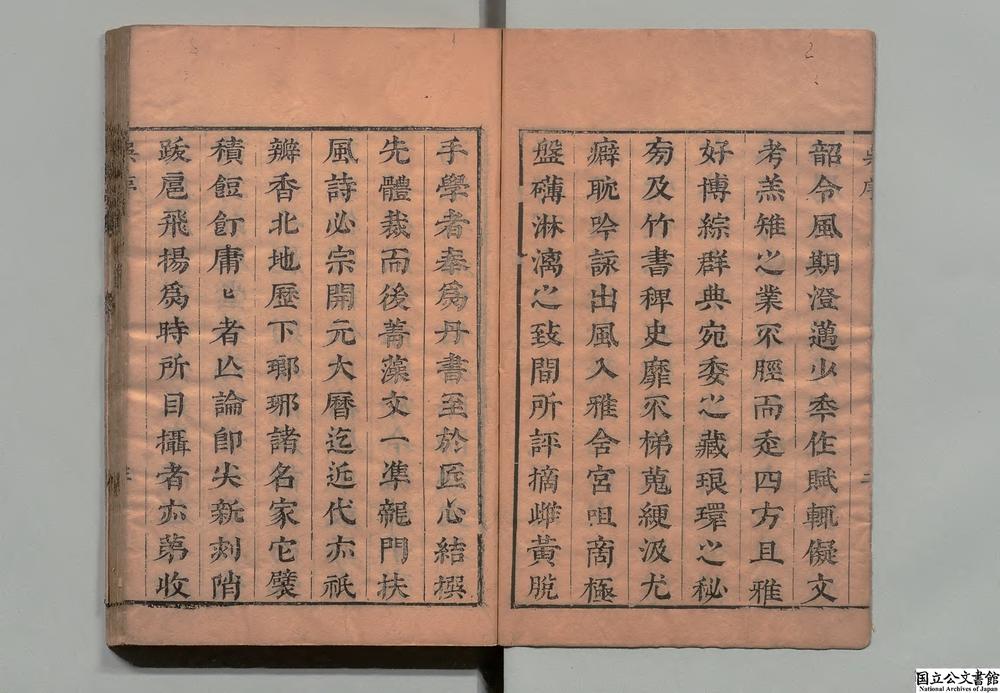 韶令風期澄邁少秊作賦輒儗文
考羔雉之業不脛而赱四方且雅
好博綜群典宛委之藏琅環之秘
旁及竹書稗史靡不梯蒐綆汲尤
癖耽吟詠出風入雅含宮咀商極
盤礴淋漓之致間所評摘雌黃脫
手學者奉爲丹書至於匠心結撰
先體裁而後菁藻文一準龍門扶
風詩必宗開元大曆迄近代亦祇
瓣香北地歷下瑯琊諸名家它襞
積餖飣庸匕者亾論卽尖新刻陗
跋扈飛揚爲時所目攝者亦苐收
国立公文書館
National Archives of Japan